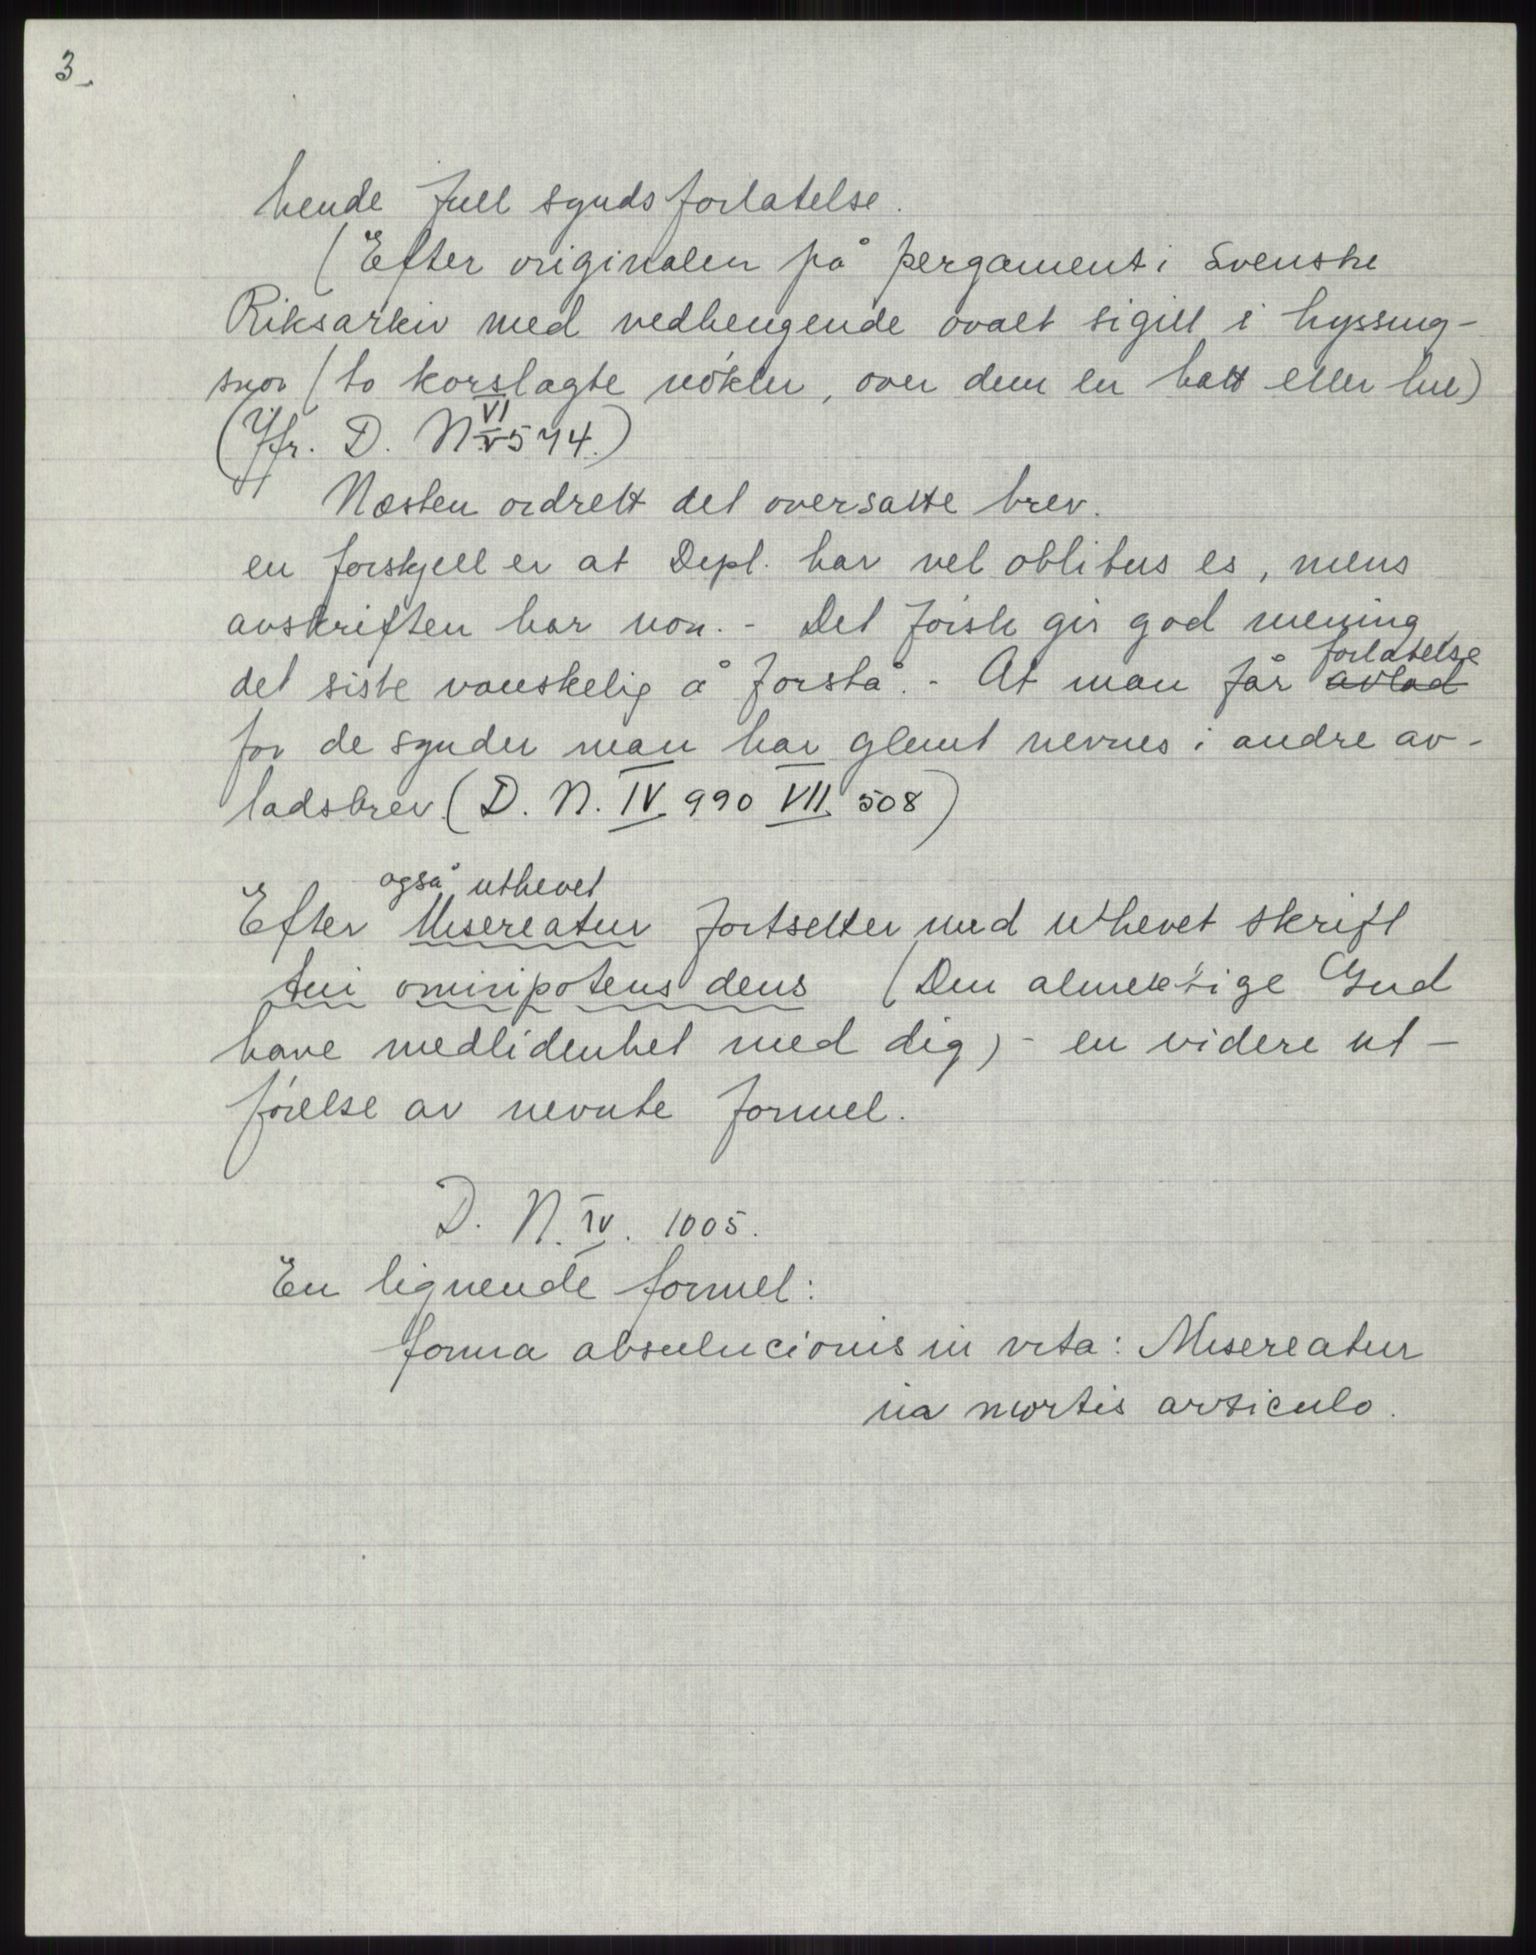 3.
hende full synds forlatelse.
(Efter originalen på pergament i Svenske
Riksarkiv med vedhengende ovalt sigill i hyssing-
snor (to korslagte nøkler, over dem en hatt eller hue)
(Jfr. D. N. VI 574.)
Næsten ordrett det oversatte brev.
en forskjell er at Dipl. har vel oblitus es, mens
avskriften har non. - Det første gir god mening
det siste vanskelig å forstå. - At man får avlad forlatelse
for de synder man har glemt nevnes i andre av-
ladsbrev (D. N. IV 990 VII 508)
også uthevet
Efter Misereatur fortsetter med uthevet skrift
tui omnipotens deus (Den almektige Gud
have medlidenhet med dig) - en videre ut-
førelse av nevnte formel.
D. N. IV. 1005.
En lignende formel:
forma absulucionis in vita: Misereatur
in mortis articulo.